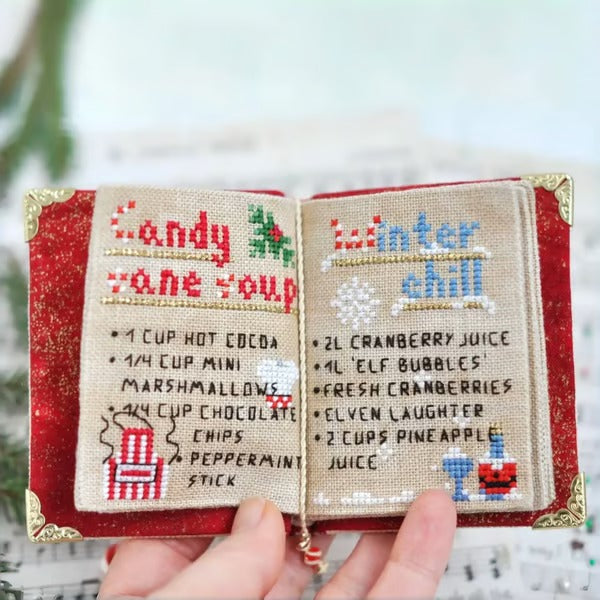 Candy
cane soup
• 1 CUP HOT COCOA
• 1/4 CUP MINI
MARSHMALLOWS
• 1/4 CUP CHOCOLATE
CHIPS
• PEPPERMINT
STICK
Winter
chill
• 2L CRANBERRY JUICE
• 1L 'ELF BUBBLES'
• FRESH CRANBERRIES
• ELVEN LAUGHTER
• 2 CUPS PINEAPPLE
JUICE